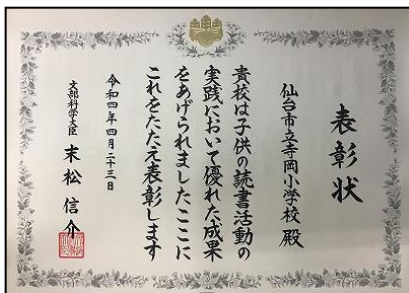 表彰状
仙台市立寺岡小学校 殿
貴校は子供の読書活動の
実践において優れた成果
をあげられましたここに
これをたたえ表彰します
令和四年四月二十三日
文部科学大臣 末松信介